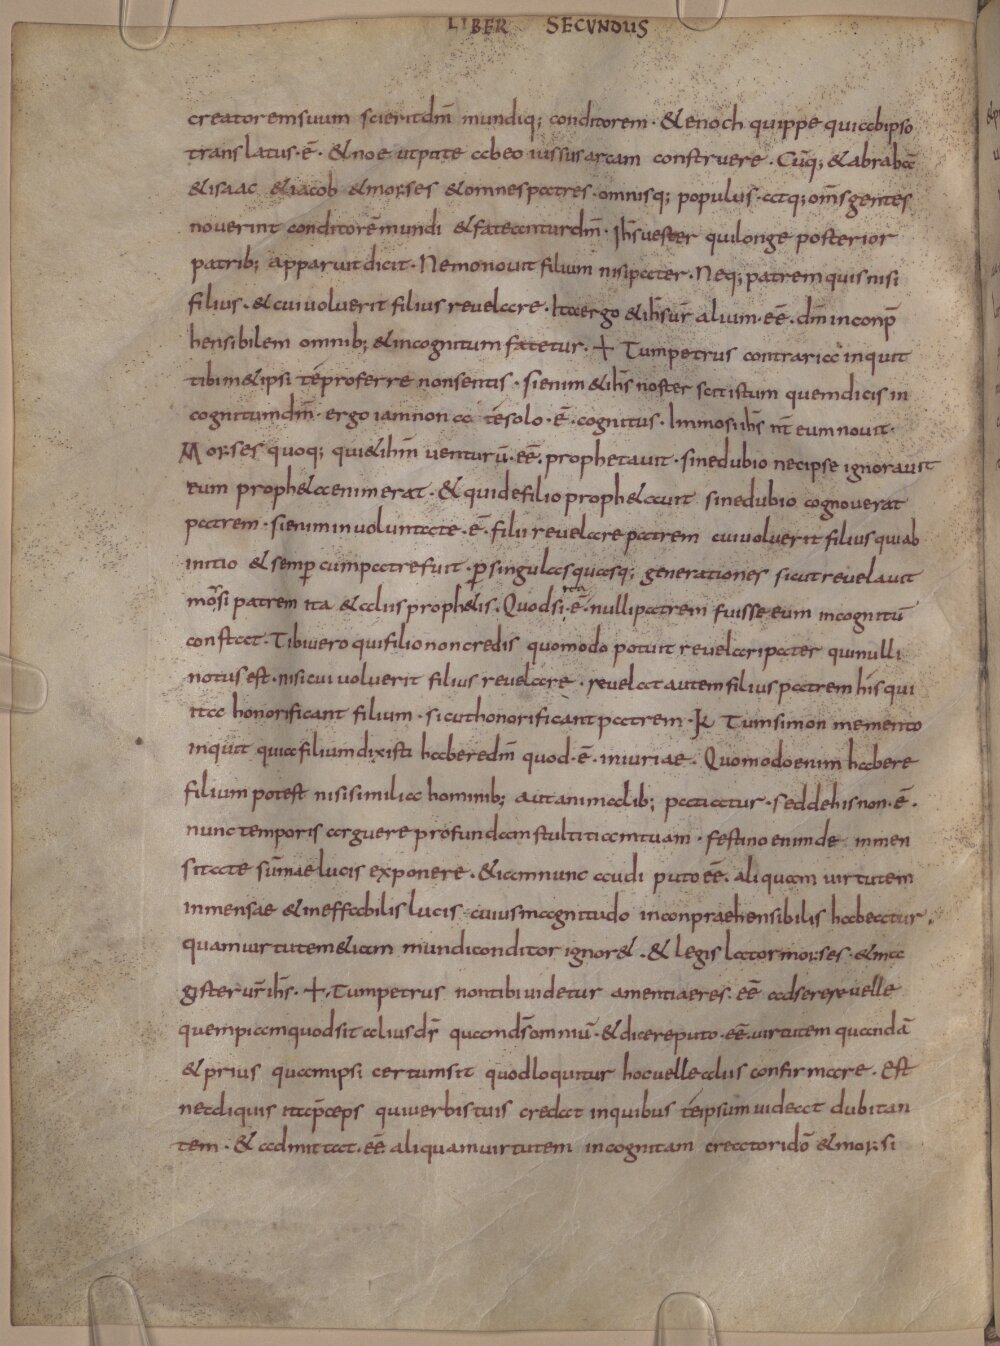 LIBER SECVNDUS
creatorem suum scierit dm̄ mundiq; conditorem · & enoch quippe qui ab ipso
translatus · ē · & noe utpute ab eo iussus arcam construere · Cūq; & abrahā
& isaac & iacob & moyses & omnes patres · omnisq; populus · atq; om̄s gentes
noverint conditorē mundi & fateantur dm̄ · Ihs̄ uester qui longe posterior
patrib; apparuit dicit · Nemo novit filium nisi pater · Neq; patrem quis nisi
filius · & cui voluerit filius revelare · Ita ergo & ihs̄ ur̄ alium · eē · dm̄ inconp̄
hensibilem omnib; & incognitum fatetur · + Tum petrus contraria inquit
tibimet ipsi te proferre non sentis · si enim & ihs̄ noster scit istum quem dicis in
cognitum dm̄ · ergo iam non a te solo · ē · cognitus · Immo si ihs̄ nt̄ eum novit ·
Moyses quoq; qui & ihm̄ venturū · eē · prophetavit · sine dubio nec ipse ignoravit
eum propheta enim erat · & qui de filio prophetavit sine dubio cognoverat
patrem · si enim in voluntate · ē · filii revelare patrem cui voluerit filius qui ab
initio & semp̄ cum patre fuit · p̄ singulas quasq; generationes sicut revelavit
moysi patrem ita & aliis prophetis · Quod si ita · ē · nulli patrem fuisse eum incognitū
constat · Tibi vero qui filio non credis quomodo potuit revelari pater qui nulli
notus est · nisi cui voluerit filius revelare · revelat autem filius patrem his qui
ita honorificant filium · sicut honorificant patrem · K Tum simon memento
inquit quia filium dixisti habere dm̄ quod · ē · iniuriae · Quomodo enim habere
filium potest nisi similia hominib; aut animalib; patiatur · sed de his non · ē ·
nunc temporis arguere profundam stultitiam tuam · festino enim de inmen
sitate sūmae lucis exponere · & iam nunc audi puto eē · aliquam virtutem
inmensae & ineffabilis lucis cuius magnitudo inconpraehensibilis habeatur ·
quam virtutem etiam mundi conditor ignoret · & legis lator moyses · & ma
gister ur̄ ihs̄ · + · Tum petrus non tibi videtur amentiae res · eē ad serere velle
quempiam quod sit alius ds̄ quam ds̄ omniū · & dicere puto · eē · virtutem quandā
& prius quam ipsi certum sit quod loquitur hoc velle aliis confirmare · Est
ne aliquis ita p̄ceps qui verbis tuis credat in quibus te ipsum videat dubitan
tem · & admittat · eē aliquam virtutem incognitam creatori dō & moysi